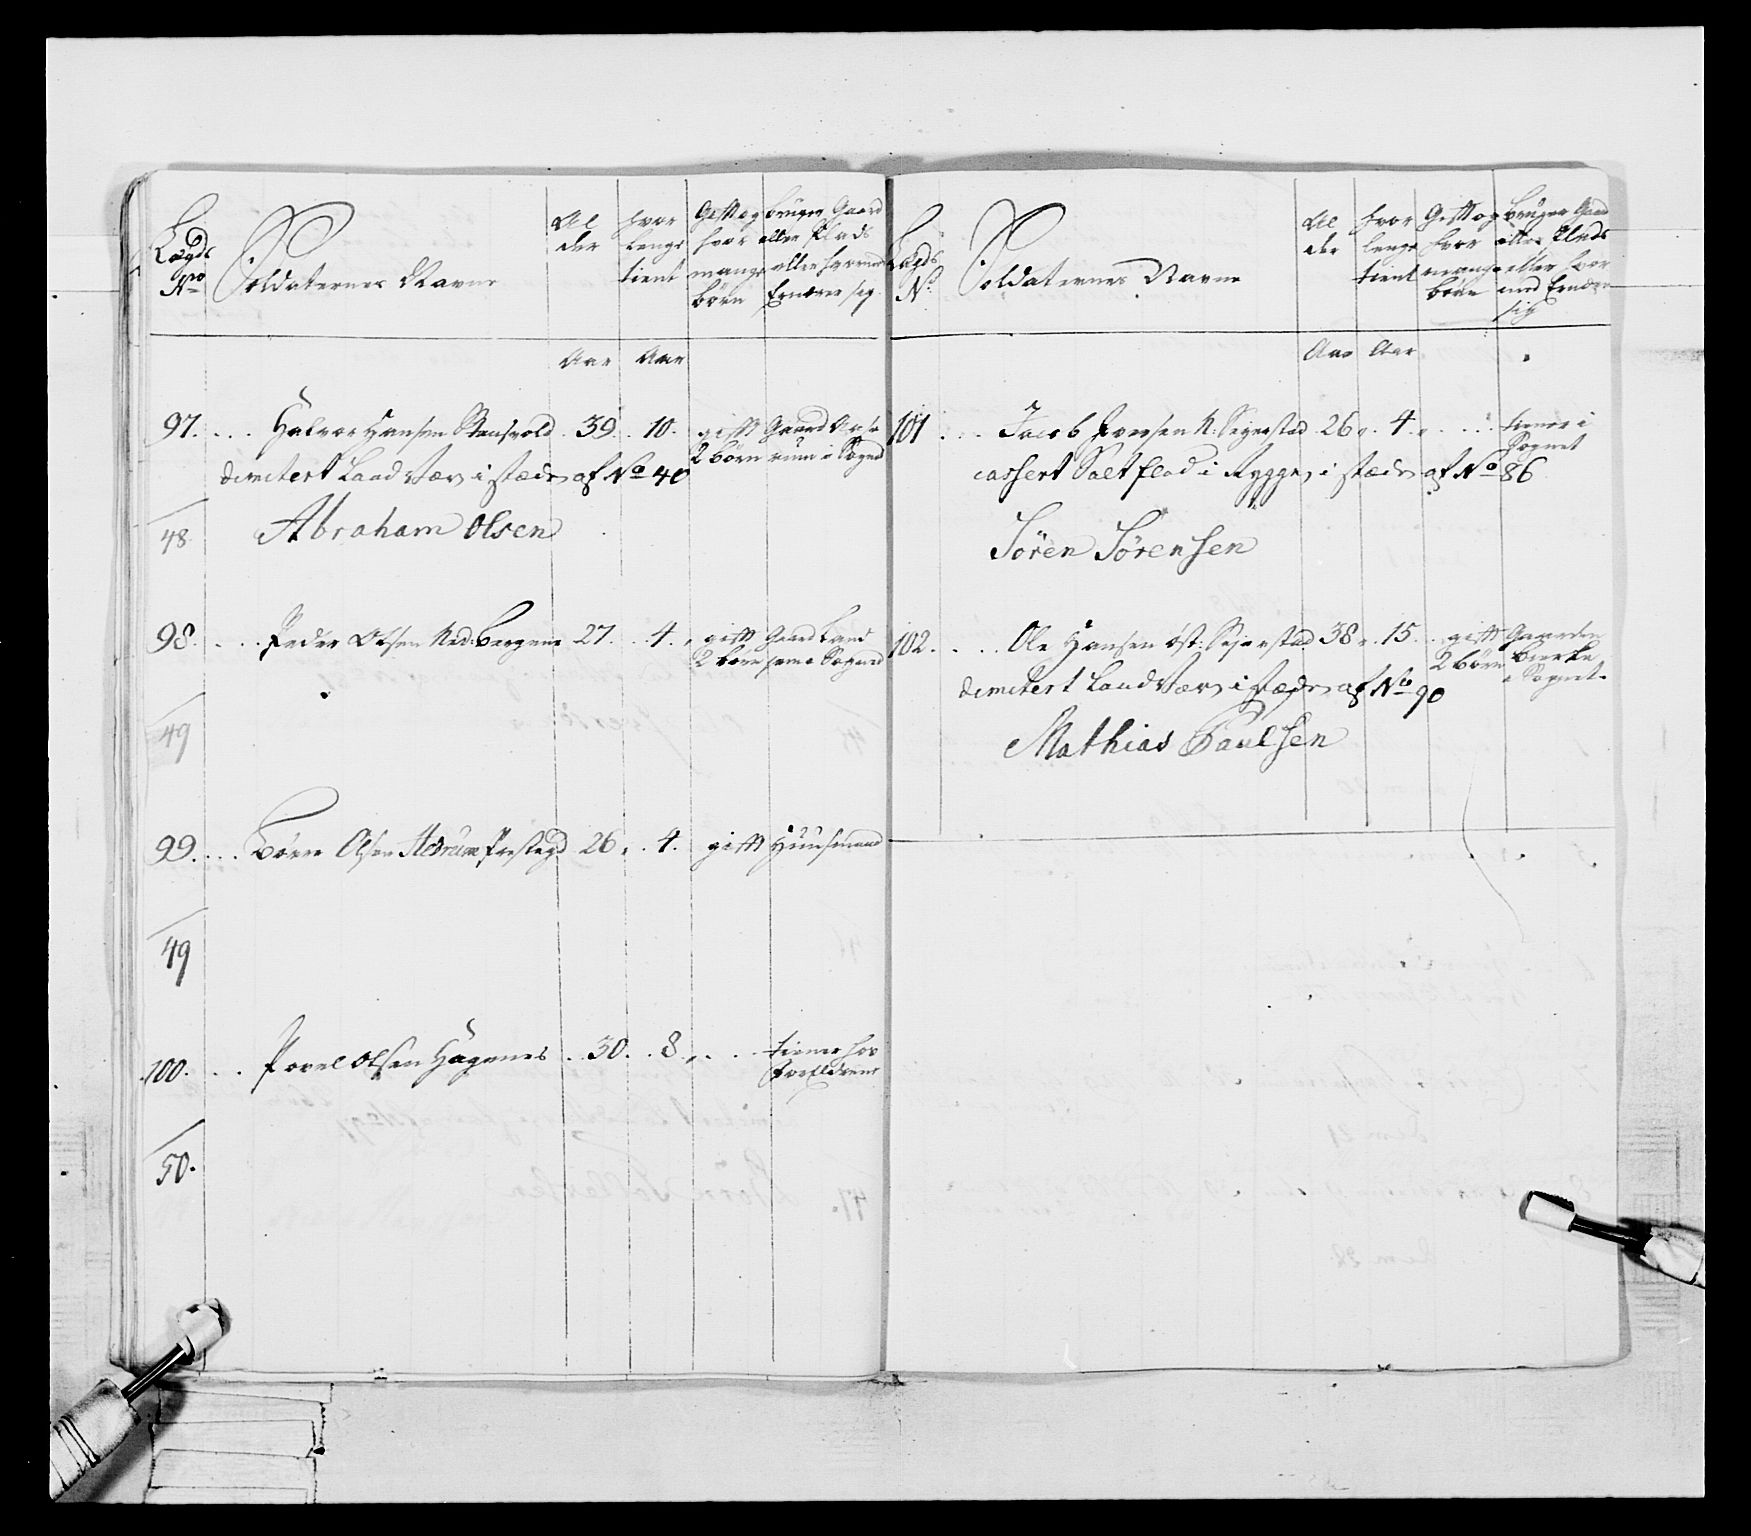 Lægds
No
Soldaternes Navne
Al
der
hvor
lenge
tient
Gift og
hvor
mange
børn
bruger Gaard
eller Plads
eller hvormed
Ernærer sig
Aar Aar
97. Halvor Hansen Stensvold 39. 10. gift Gaard
2 børn Sogned
dimitert Land Værn i stæden af No 40
48 Abraham Olsen
98. Peder Olsen Ned: Bergene 27. 4. gift Gaard Land
2 børn samme Sogned
49
99. Børre Olsen Prestegd 26. 4. gift Huusmand
49
100. Povel Olsen Hagenes 30. 8. tiener hos
Forældrene
50.
Lægds
No
Soldaternes Navne
Al
der
hvor
lenge
tient
Gift og
hvor
mange
børn
bruger Gaard
eller Plads
eller hvor
med Ernærer
sig
Aar Aar
101 Jacob Iversen N: Sejerstad 26. 4. tiener i
Sognet
cassert Saltflod i Rygge, i stæden af No 86
Sören Sørensen
102. Ole Hansen øst: Sejerstad 38. 15. gift Gaarden
2 børn Bierke
i Sognet
dimitert Land Værn i stæden af No 90
Mathias Paulsen